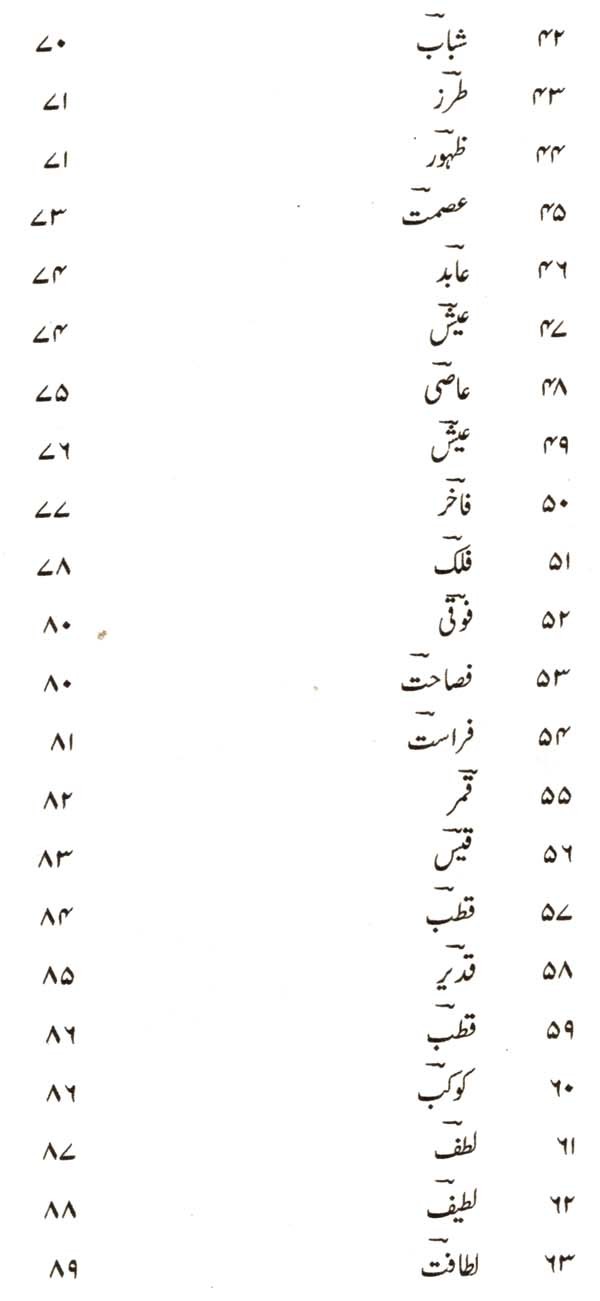 ۴۲ شبابؔ ۷۰
۴۳ طرزؔ ۷۱
۴۴ ظہورؔ ۷۱
۴۵ عصمتؔ ۷۳
۴۶ عابدؔ ۷۴
۴۷ عیشؔ ۷۴
۴۸ عاصیؔ ۷۵
۴۹ عیشؔ ۷۶
۵۰ فاخرؔ ۷۷
۵۱ فلکؔ ۷۸
۵۲ فوقیؔ ۸۰
۵۳ فصاحتؔ ۸۰
۵۴ فراستؔ ۸۱
۵۵ قمرؔ ۸۲
۵۶ قیسؔ ۸۳
۵۷ قطبؔ ۸۴
۵۸ قدیرؔ ۸۵
۵۹ قطبؔ ۸۶
۶۰ کوکبؔ ۸۶
۶۱ لطفؔ ۸۷
۶۲ لطیفؔ ۸۸
۶۳ لطافتؔ ۸۹